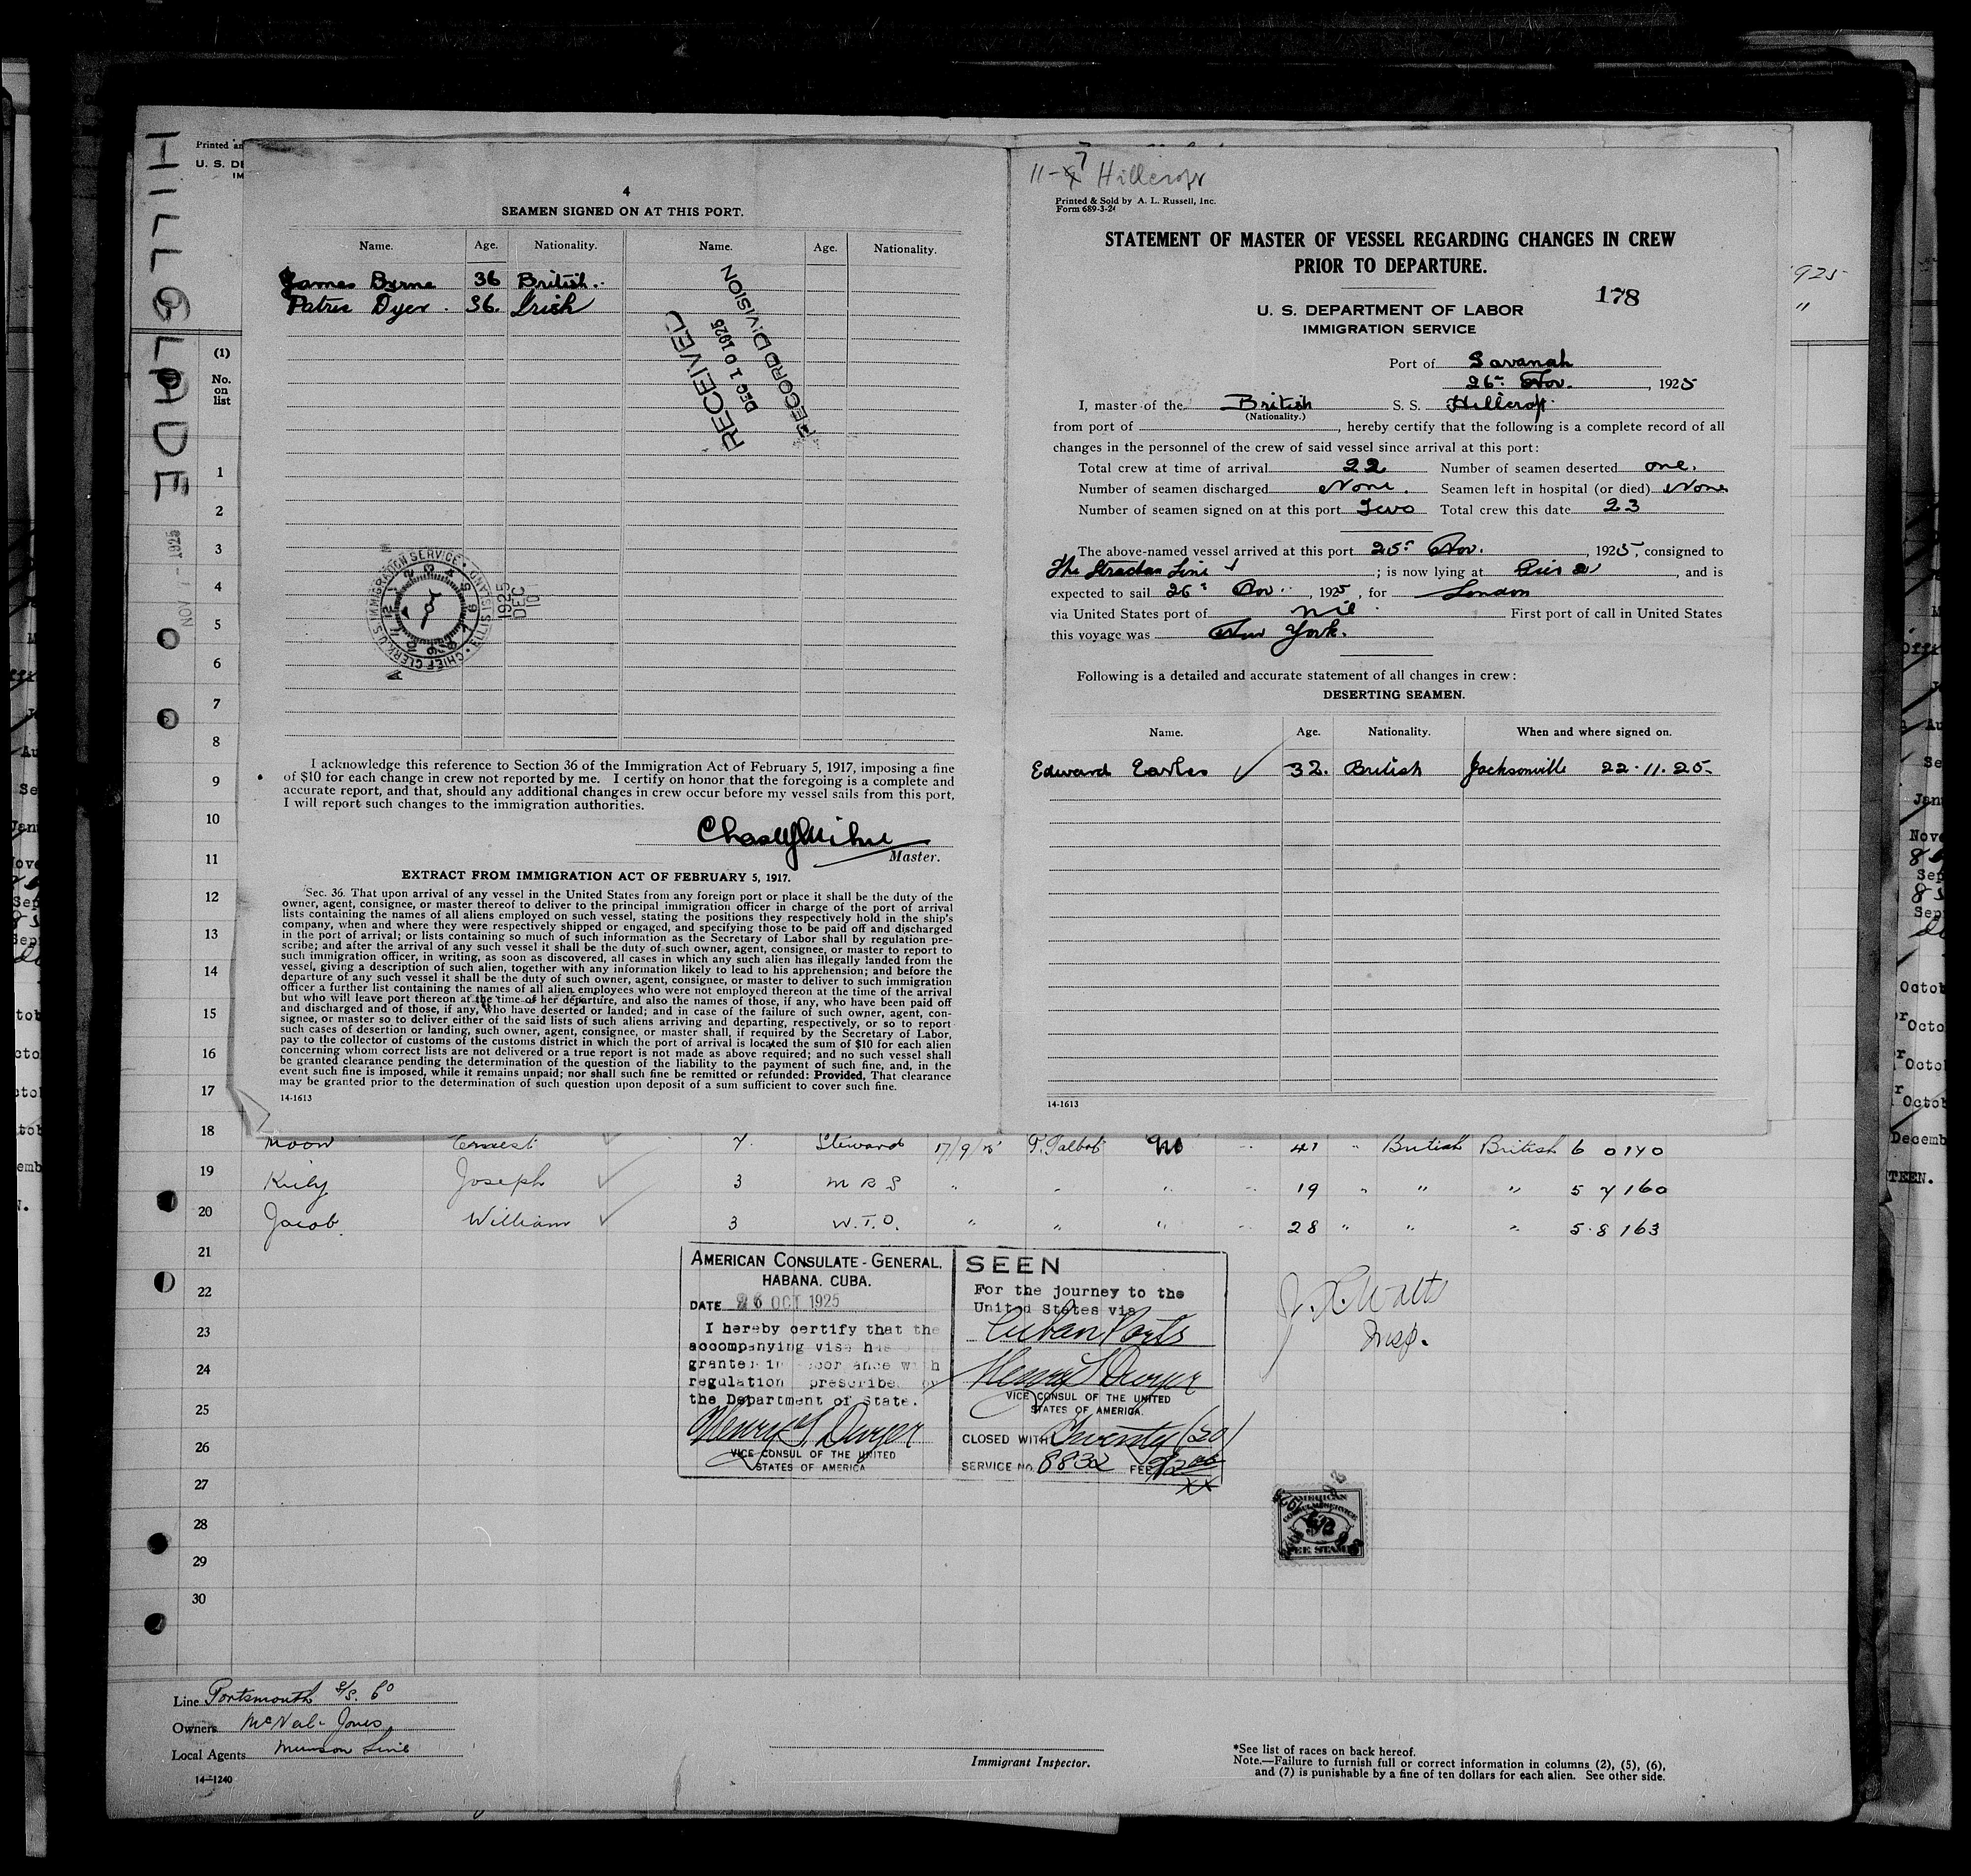 HILLGLADE
NOV 7 - 1925
Printed an
U. S. DE
IM
(1)
No.
on
list
1
2
3
4
5
6
7
8
9
10
11
12
13
14
15
16
17
4
SEAMEN SIGNED ON AT THIS PORT.
Name. Age. Nationality. Name. Age. Nationality.
James Byrne 36 British.
Patric Dyer. 36. Irish
RECEIVED
DEC 10 1925
RECORD DIVISION
CHIEF CLERK, U.S. IMMIGRATION SERVICE • ELLIS ISLAND
DEC 10 1925
I acknowledge this reference to Section 36 of the Immigration Act of February 5, 1917, imposing a fine
of $10 for each change in crew not reported by me. I certify on honor that the foregoing is a complete and
accurate report, and that, should any additional changes in crew occur before my vessel sails from this port,
I will report such changes to the immigration authorities.
Master.
EXTRACT FROM IMMIGRATION ACT OF FEBRUARY 5, 1917.
Sec. 36. That upon arrival of any vessel in the United States from any foreign port or place it shall be the duty of the
owner, agent, consignee, or master thereof to deliver to the principal immigration officer in charge of the port of arrival
lists containing the names of all aliens employed on such vessel, stating the positions they respectively hold in the ship's
company, when and where they were respectively shipped or engaged, and specifying those to be paid off and discharged
in the port of arrival; or lists containing so much of such information as the Secretary of Labor shall by regulation pre-
scribe; and after the arrival of any such vessel it shall be the duty of such owner, agent, consignee, or master to report to
such immigration officer, in writing, as soon as discovered, all cases in which any such alien has illegally landed from the
vessel, giving a description of such alien, together with any information likely to lead to his apprehension; and before the
departure of any such vessel it shall be the duty of such owner, agent, consignee, or master to deliver to such immigration
officer a further list containing the names of all alien employees who were not employed thereon at the time of the arrival
but who will leave port thereon at the time of her departure, and also the names of those, if any, who have been paid off
and discharged and of those, if any, who have deserted or landed; and in case of the failure of such owner, agent, con-
signee, or master so to deliver either of the said lists of such aliens arriving and departing, respectively, or so to report
such cases of desertion or landing, such owner, agent, consignee, or master shall, if required by the Secretary of Labor,
pay to the collector of customs of the customs district in which the port of arrival is located the sum of $10 for each alien
concerning whom correct lists are not delivered or a true report is not made as above required; and no such vessel shall
be granted clearance pending the determination of the question of the liability to the payment of such fine, and, in the
event such fine is imposed, while it remains unpaid; nor shall such fine be remitted or refunded: Provided, That clearance
may be granted prior to the determination of such question upon deposit of a sum sufficient to cover such fine.
14-1613
11-7 Hillcroft
Printed & Sold by A. L. Russell, Inc.
Form 689-3-24
STATEMENT OF MASTER OF VESSEL REGARDING CHANGES IN CREW
PRIOR TO DEPARTURE.
178
U. S. DEPARTMENT OF LABOR
IMMIGRATION SERVICE
Port of Savanah
26th Nov. , 1925
I, master of the British S. S. Hillcroft
(Nationality.)
from port of , hereby certify that the following is a complete record of all
changes in the personnel of the crew of said vessel since arrival at this port:
Total crew at time of arrival 22 Number of seamen deserted one.
Number of seamen discharged None. Seamen left in hospital (or died) None
Number of seamen signed on at this port Two Total crew this date 23
The above-named vessel arrived at this port 25th Nov. , 1925, consigned to
The Strachan Line ; is now lying at Pier 2 , and is
expected to sail 26th Nov. , 1925 , for London
via United States port of nil First port of call in United States
this voyage was New York.
Following is a detailed and accurate statement of all changes in crew:
DESERTING SEAMEN.
Name. Age. Nationality. When and where signed on.
Edward Earles 32. British Jacksonville 22.11.25
14-1613
1925
"
18 Moon Ernest 7 Steward 17/9/25 P. Talbot No 41 " British British 6 0 140
19 Kiely Joseph 3 M R S " " " 19 " " " 5 7 160
20 Jacob. William 3 W.T.O. " " " 28 " " " 5.8 163
21
22
23
24
25
26
27
28
29
30
AMERICAN CONSULATE-GENERAL,
HABANA, CUBA.
DATE 26 OCT 1925
I hereby certify that the
accompanying visa has
granted in accordance with
regulation prescribed by
the Department of State.
Henry S. Dwyer
VICE CONSUL OF THE UNITED
STATES OF AMERICA
SEEN
For the journey to the
United States via
Cuban Ports
Henry S. Dwyer
VICE CONSUL OF THE UNITED
STATES OF AMERICA.
CLOSED WITH Twenty (20)
SERVICE NO. 8832 FEE $2.00
XX
Insp.
AMERICAN
CONSULAR SERVICE
FEE STAMP
Line Portsmouth S/S. Co
Owners McNeil-Jones
Local Agents Munson Line
14-1240
Immigrant Inspector.
*See list of races on back hereof.
Note.—Failure to furnish full or correct information in columns (2), (5), (6),
and (7) is punishable by a fine of ten dollars for each alien. See other side.